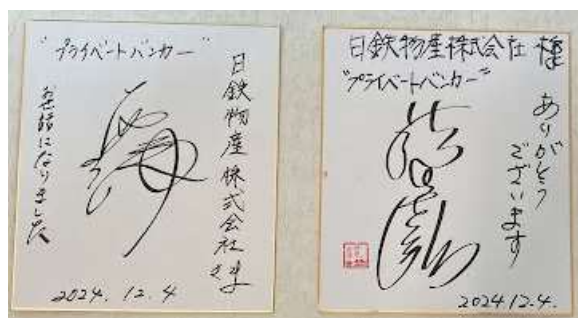 "プライベートバンカー"
日鉄物産株式会社さま
お世話になりました
2024. 12. 4
日鉄物産株式会社 様
"プライベートバンカー"
ありがとう
ございます
2024.12.4.